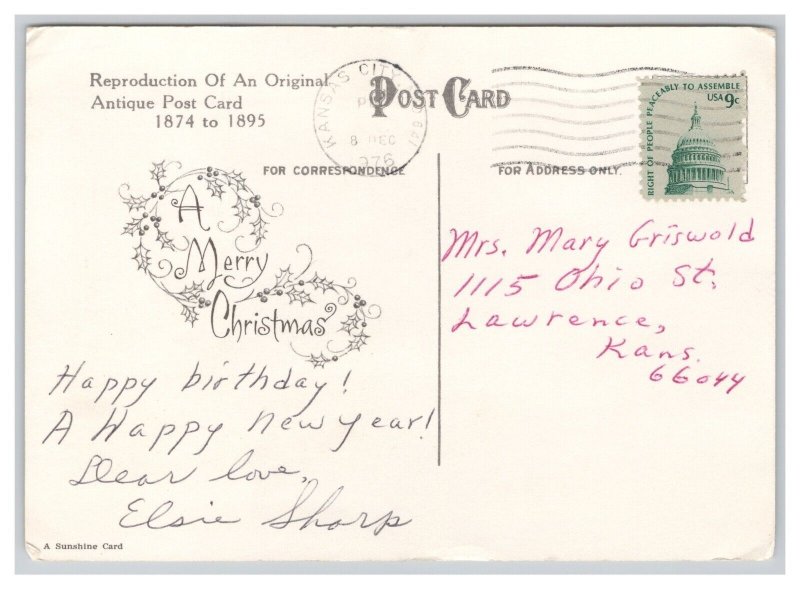 Reproduction Of An Original
Antique Post Card
1874 to 1895
KANSAS CITY
8 DEC
1976
POST CARD
RIGHT OF PEOPLE PEACEABLY TO ASSEMBLE
USA 9c
FOR CORRESPONDENCE
FOR ADDRESS ONLY.
A
Merry
Christmas
Happy birthday!
A Happy New Year!
Dear love,
Elsie Sharp
Mrs. Mary Griswold
1115 Ohio St.
Lawrence,
Kans.
66044
A Sunshine Card